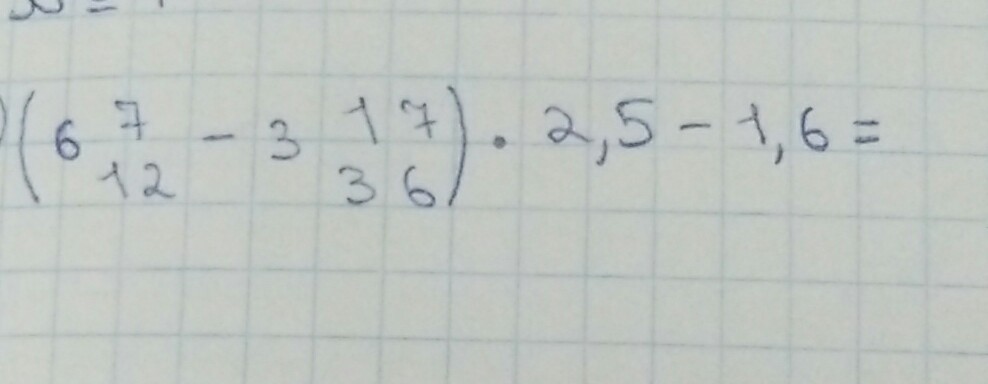 (6 7/12 - 3 17/36) · 2,5 - 1,6 =